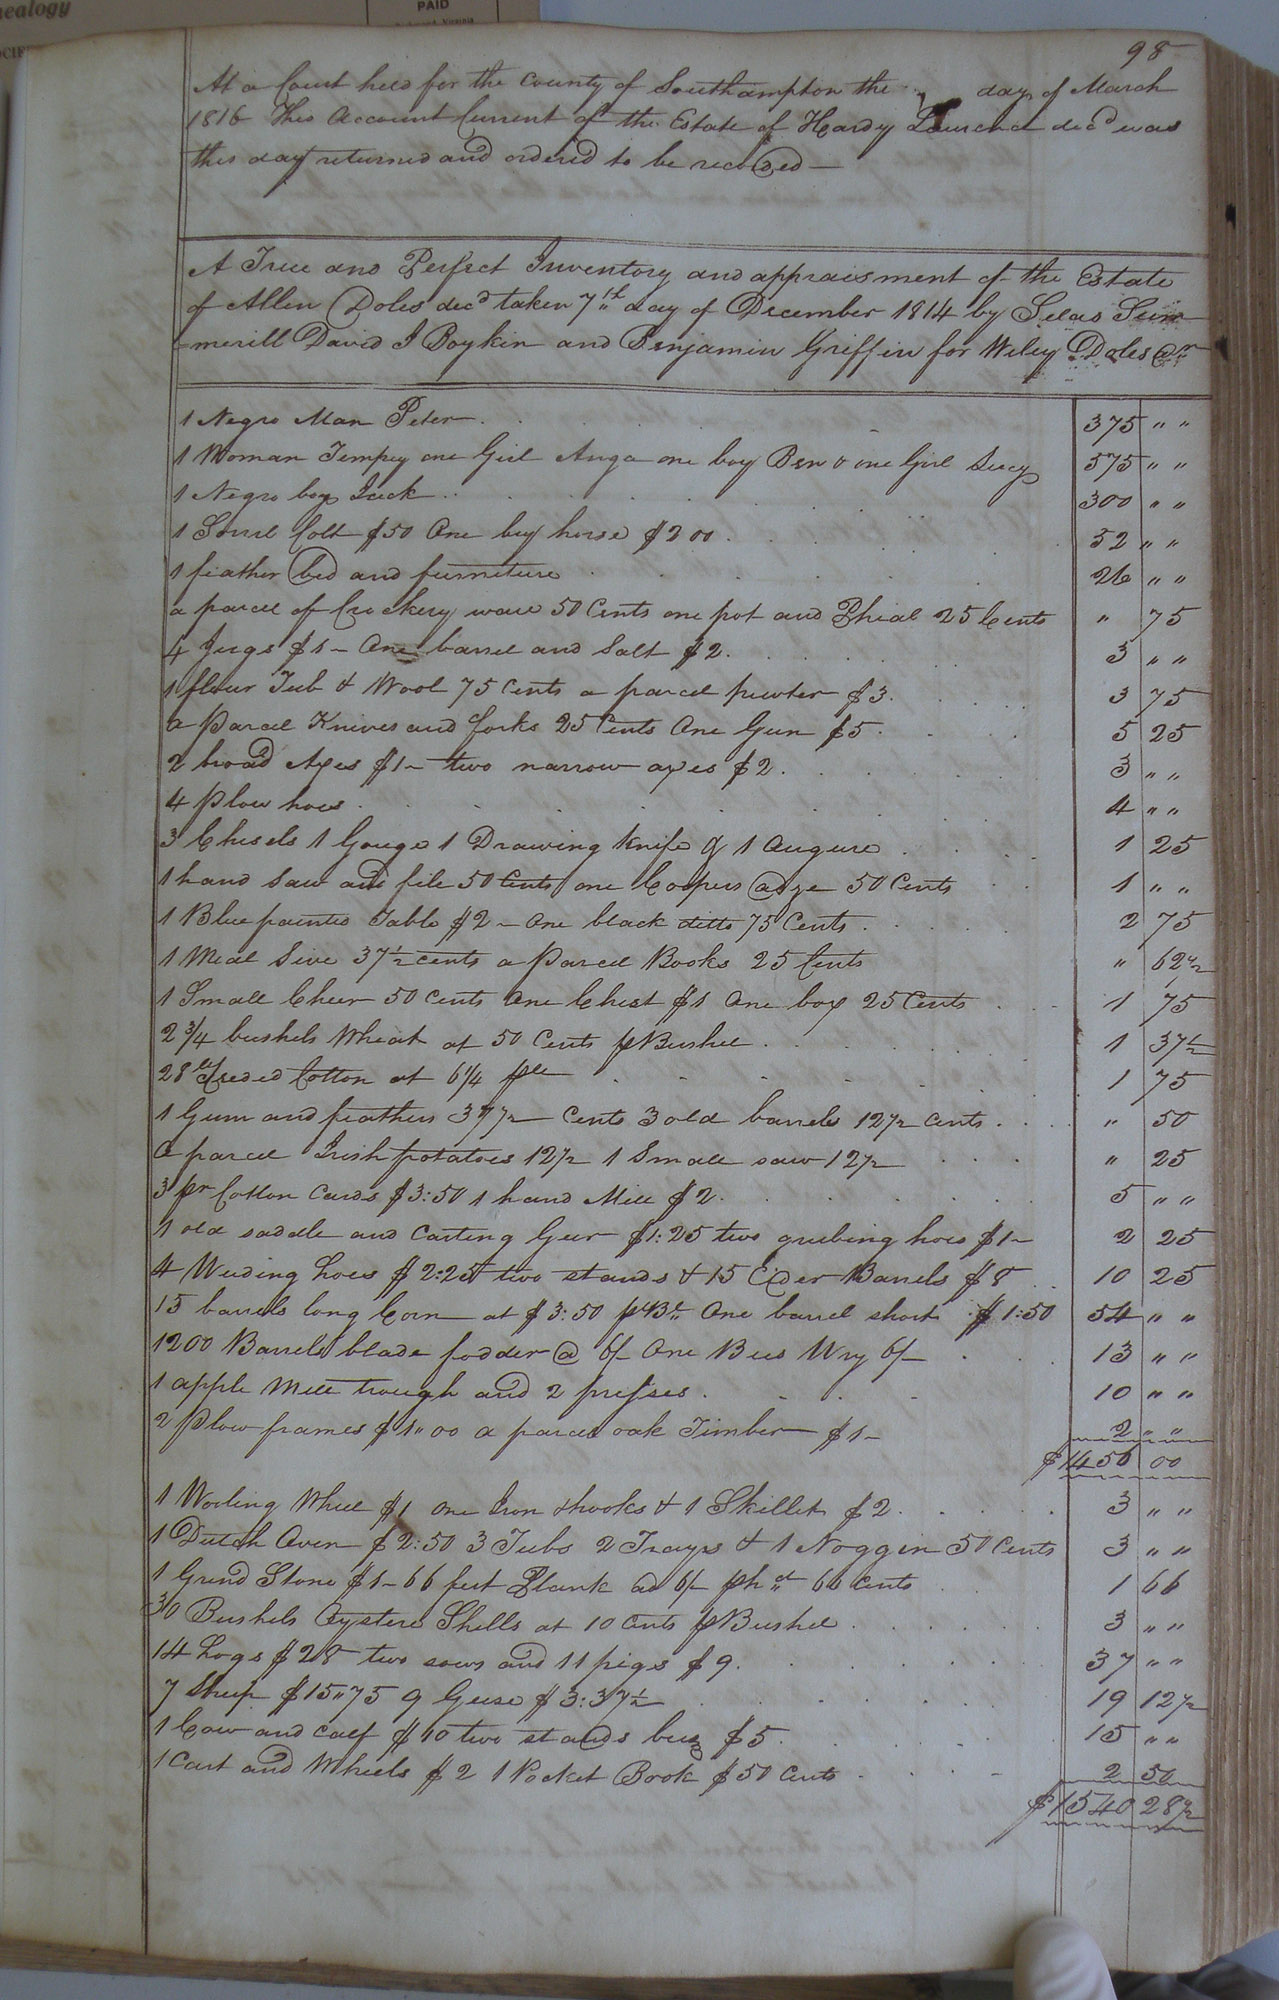 nealogy
PAID
98
At a Court held for the County of Southampton the day of March
1816 This Account Current of the Estate of Hardy Lawrence decd was
this day returned and ordered to be recorded —
A True and Perfect Inventory and appraisment of the Estate
of Allen Doles decd taken 7th day of December 1814 by Selas Sum
merill David J Boykin and Benjamin Griffin for Wiley Doles
1 Negro Man Peter 375 " "
1 Woman Tempey one Girl Anga one boy Ben & one Girl Lucy 575 " "
1 Negro boy Jack 300 " "
1 Sorril Colt $50 One bey horse $2 00 52 " "
1 feather bed and furneture 26 " "
a parcel of Crockery ware 50 Cents one pot and Phial 25 Cents " 75
4 Jugs $1 – One barrel and Salt $2. 3 " "
1 flour Tub & Wool 75 Cents a parcel pewter $3. 3 75
a Parcel Knives and forks 25 Cents One Gun $5. 5 25
2 broad Axes $1 – two narrow axes $2. 3 " "
4 Plow hoes 4 " "
3 Chisels 1 Gouge 1 Drawing Knife & 1 Augure 1 25
1 hand Saw and file 50 Cents one Coopers adze 50 Cents 1 " "
1 Blue painted Table $2 – One black ditto 75 Cents. 2 75
1 Meal Sive 37½ cents a Parcel Books 25 Cents " 62½
1 Small Cheer 50 Cents One Chest $1 One box 25 Cents 1 75
2 3/4 bushels Wheat at 50 Cents p Bushel 1 37½
28 lb Seeded Cotton at 6¼ p lb 1 75
1 Gum and feathers 37½ Cents 3 old barrels 12½ cents. " 50
a parcel Irish potatoes 12½ 1 Small saw 12½ " 25
3 pr Cotton Cards $3:50 1 hand Mill $2. 5 " "
1 old saddle and Carting Geer $1:25 two grubing hoes $1 – 2 25
4 Weeding hoes $2:25 two stands & 15 Cider Barrels $8 10 25
15 barrels long Corn at $3:50 p Bl One barrel short $1:50 54 " "
1200 Barrels blade fodder @ 6/ One Bees Wry 6/ 13 " "
1 apple Mill trough and 2 presses. 10 " "
2 Plow frames $1"00 a parcel oak Timber $1 – 2 " "
$1456 00
1 Wooling Wheel $1 One Iron hooks & 1 Skillet $2. 3 " "
1 Dutch Oven $2:50 3 Tubs 2 Trays & 1 Noggin 50 Cents 3 " "
1 Grind Stone $1 – 66 feet Plank at 6/ p hd 66 Cents 1 66
30 Bushels Oysters Shells at 10 Cents p Bushel 3 " "
14 hogs $28 two sows and 11 pigs $9. 37 " "
7 Sheep $15"75 9 Geese $3:37½ 19 12½
1 Cow and calf $10 two stands bees $5. 15 " "
1 Cart and Wheels $2 1 Pocket Book $50 Cents 2 50
$1540 28½